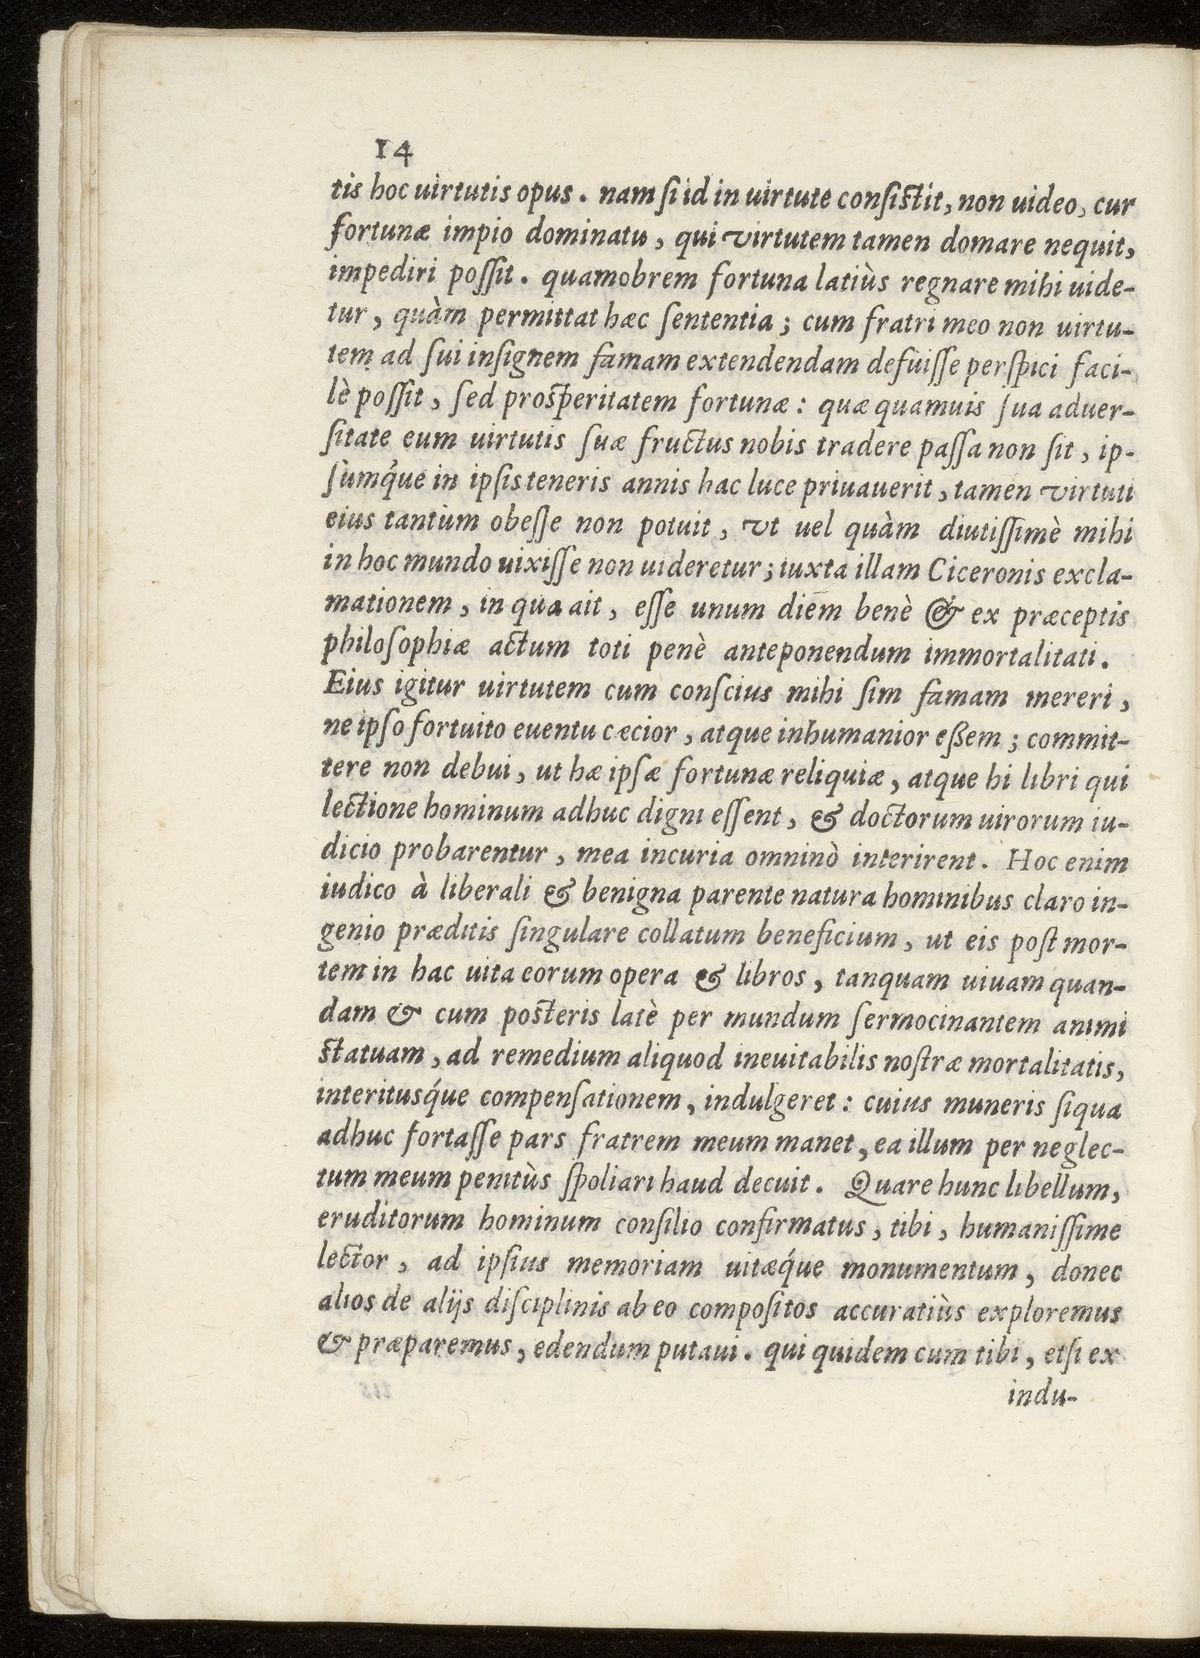 14
tis hoc uirtutis opus. nam ſi id in uirtute conſiſtit, non uideo, cur
fortunæ impio dominatu, qui virtutem tamen domare nequit,
impediri poſſit. quamobrem fortuna latiùs regnare mihi uide-
tur, quàm permittat hæc ſententia; cum fratri meo non uirtu-
tem ad ſui inſignem famam extendendam defuiſſe perſpici faci-
lè poſſit, ſed proſperitatem fortunæ: quæ quamuis ſua aduer-
ſitate eum uirtutis ſuæ fructus nobis tradere paſſa non ſit, ip-
ſumq́ue in ipſis teneris annis hac luce priuauerit, tamen virtuti
eius tantum obeſſe non potuit, vt uel quàm diutiſſimè mihi
in hoc mundo uixiſſe non uideretur; iuxta illam Ciceronis excla-
mationem, in qua ait, eſſe unum diem benè & ex præceptis
philoſophiæ actum toti penè anteponendum immortalitati.
Eius igitur uirtutem cum conſcius mihi ſim famam mereri,
ne ipſo fortuito euentu cæcior, atque inhumanior eßem; commit-
tere non debui, ut hæ ipſæ fortunæ reliquiæ, atque hi libri qui
lectione hominum adhuc digni eſſent, & doctorum uirorum iu-
dicio probarentur, mea incuria omninò interirent. Hoc enim
iudico à liberali & benigna parente natura hominibus claro in-
genio præditis ſingulare collatum beneficium, ut eis poſt mor-
tem in hac uita eorum opera & libros, tanquam uiuam quan-
dam & cum poſteris latè per mundum ſermocinantem animi
ſtatuam, ad remedium aliquod ineuitabilis noſtræ mortalitatis,
interitusq́ue compenſationem, indulgeret: cuius muneris ſiqua
adhuc fortaſſe pars fratrem meum manet, ea illum per neglec-
tum meum penitùs ſpoliari haud decuit. Quare hunc libellum,
eruditorum hominum conſilio confirmatus, tibi, humaniſſime
lector, ad ipſius memoriam uitæq́ue monumentum, donec
alios de alijs diſciplinis ab eo compoſitos accuratiùs exploremus
& præparemus, edendum putaui. qui quidem cum tibi, etſi ex
indu-